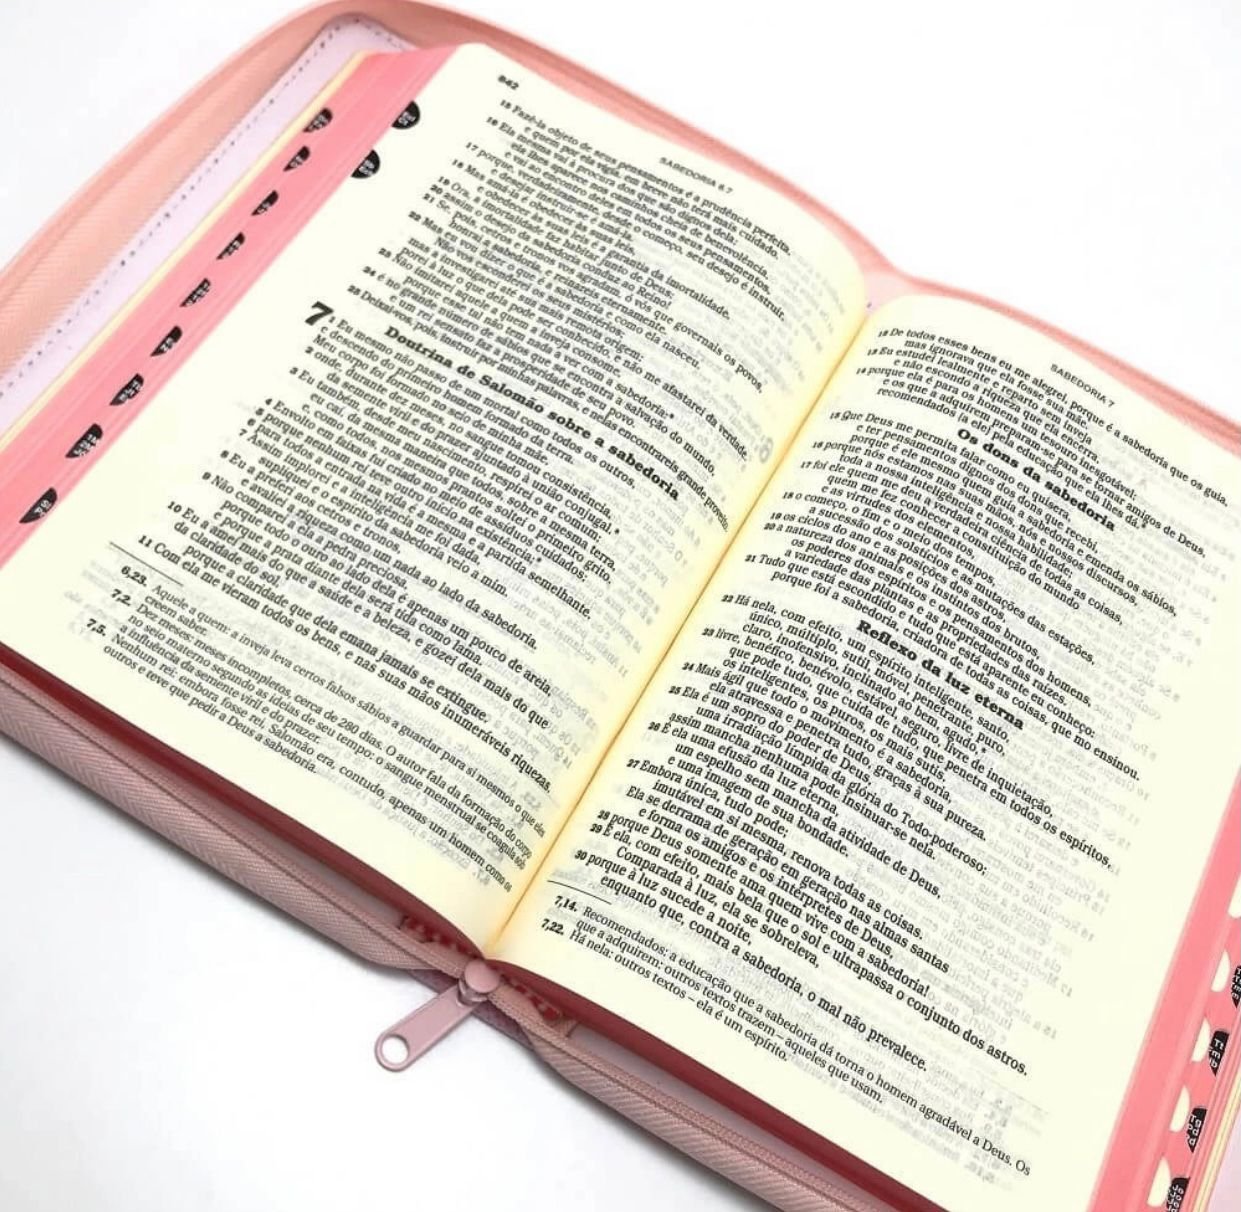 842
SABEDORIA 6.7
15 Fazê-la objeto de seus pensamentos é a prudência perfeita,
e quem por ela vigia, em breve não terá mais cuidado.
16 Ela mesma vai à procura dos que são dignos dela;
ela lhes aparece nos caminhos cheia de benevolência,
e vai ao encontro deles em todos os seus pensamentos,
17 porque, verdadeiramente, desde o começo, seu desejo é instruir,
e desejar instruir-se é amá-la.
18 Mas amá-la é obedecer às suas leis,
e obedecer às suas leis é a garantia da imortalidade.
19 Ora, a imortalidade faz habitar junto de Deus;
20 assim o desejo da sabedoria conduz ao Reino!
21 Se, pois, cetros e tronos vos agradam, ó vós que governais os povos,
honrai a sabedoria, e reinareis eternamente.
22 Mas eu vou dizer o que é a sabedoria e como ela nasceu.
Não vos esconderei os seus mistérios;
mas a investigarei até sua mais remota origem;
porei à luz o que dela pode ser conhecido, e não me afastarei da verdade.
23 Não imitarei aquele a quem a inveja consome,
porque esse tal não tem nada a ver com a sabedoria:*
24 é no grande número de sábios que se encontra a salvação do mundo,
e um rei sensato faz a prosperidade de seu povo.
25 Deixai-vos, pois, instruir por minhas palavras, e nelas encontrareis grande proveito.
Doutrina de Salomão sobre a sabedoria
7 1 Eu mesmo não passo de um mortal como todos os outros,
e descendo do primeiro homem formado da terra.
Meu corpo foi formado no seio de minha mãe,
2 onde, durante dez meses, no sangue tomou consistência,
da semente viril e do prazer ajuntado à união conjugal.*
3 Eu também, desde meu nascimento, respirei o ar comum;
eu caí, da mesma maneira que todos, sobre a mesma terra,
e, como todos, nos mesmos prantos soltei o primeiro grito.
4 Envolto em faixas fui criado no meio de assíduos cuidados;
5 porque nenhum rei teve outro início na existência;*
6 para todos a entrada na vida é a mesma e a partida semelhante.
7 Assim implorei e a inteligência me foi dada,
supliquei e o espírito da sabedoria veio a mim.
8 Eu a preferi aos cetros e tronos,
e avaliei a riqueza como um nada ao lado da sabedoria.
9 Não comparei a ela a pedra preciosa,
porque todo o ouro ao lado dela é apenas um pouco de areia,
e porque a prata diante dela será tida como lama.
10 Eu a amei mais do que a saúde e a beleza, e gozei dela mais do que
da claridade do sol,
porque a claridade que dela emana jamais se extingue.
11 Com ela me vieram todos os bens, e nas suas mãos inumeráveis riquezas.
6,23. Aquele a quem: a inveja leva certos falsos sábios a guardar para si mesmos o que eles
creem saber.
7,2. Dez meses: meses incompletos, cerca de 280 dias. O autor fala da formação do corpo
no seio materno segundo as ideias de seu tempo: o sangue menstrual se coagula sob
a influência da semente viril e do prazer.
7,5. Nenhum rei: embora fosse rei, Salomão era, contudo, apenas um homem como os
outros e teve que pedir a Deus a sabedoria.
SABEDORIA 7
12 De todos esses bens eu me alegrei, porque é a sabedoria que os guia,
mas ignorava que ela fosse sua mãe.
13 Eu estudei lealmente e reparto sem inveja
e não escondo a riqueza que ela encerra,
14 porque ela é para os homens um tesouro inesgotável;
e os que a adquirem preparam-se para se tornar amigos de Deus,
recomendados [a ele] pela educação que ela lhes dá.*
Os dons da sabedoria
15 Que Deus me permita falar como eu quisera,
e ter pensamentos dignos dos dons que recebi,
porque é ele mesmo quem guia a sabedoria e emenda os sábios,
16 porque nós estamos nas suas mãos, nós e nossos discursos,
toda a nossa inteligência e nossa habilidade;
17 foi ele quem me deu a verdadeira ciência de todas as coisas,
quem me fez conhecer a constituição do mundo
e as virtudes dos elementos,
18 o começo, o fim e o meio dos tempos,
a sucessão dos solstícios e as mutações das estações,
19 os ciclos do ano e as posições dos astros,
20 a natureza dos animais e os instintos dos brutos,
os poderes dos espíritos e os pensamentos dos homens,
a variedade das plantas e as propriedades das raízes.
21 Tudo que está escondido e tudo que está aparente eu conheço:
porque foi a sabedoria, criadora de todas as coisas, que mo ensinou.
Reflexo da luz eterna
22 Há nela, com efeito, um espírito inteligente, santo,
único, múltiplo, sutil, móvel, penetrante, puro,
claro, inofensivo, inclinado ao bem, agudo,*
23 livre, benéfico, benévolo, estável, seguro, livre de inquietação,
que pode tudo, que cuida de tudo, que penetra em todos os espíritos,
os inteligentes, os puros, os mais sutis.
24 Mais ágil que todo o movimento é a sabedoria,
ela atravessa e penetra tudo, graças à sua pureza.
25 Ela é um sopro do poder de Deus,
uma irradiação límpida da glória do Todo-poderoso;
assim mancha nenhuma pode insinuar-se nela.
26 É ela uma efusão da luz eterna,
um espelho sem mancha da atividade de Deus,
e uma imagem de sua bondade.
27 Embora única, tudo pode;
imutável em si mesma, renova todas as coisas.
Ela se derrama de geração em geração nas almas santas
e forma os amigos e os intérpretes de Deus,
28 porque Deus somente ama quem vive com a sabedoria!
29 É ela, com efeito, mais bela que o sol e ultrapassa o conjunto dos astros.
Comparada à luz, ela se sobreleva,
30 porque à luz sucede a noite,
enquanto que, contra a sabedoria, o mal não prevalece.
7,14. Recomendados: a educação que a sabedoria dá torna o homem agradável a Deus. Os
que a adquirem: outros textos trazem – aqueles que usam.
7,22. Há nela: outros textos – ela é um espírito.